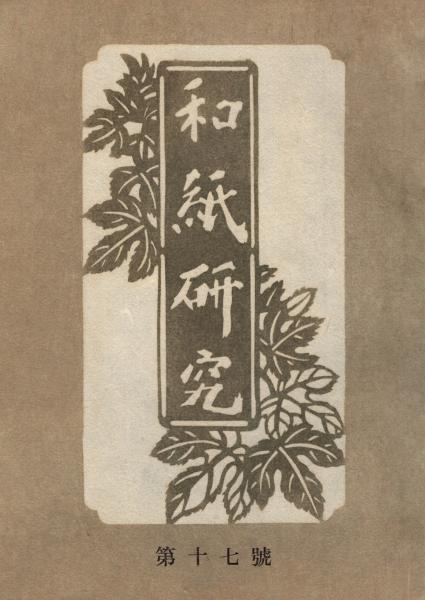 和紙研究
第十七號